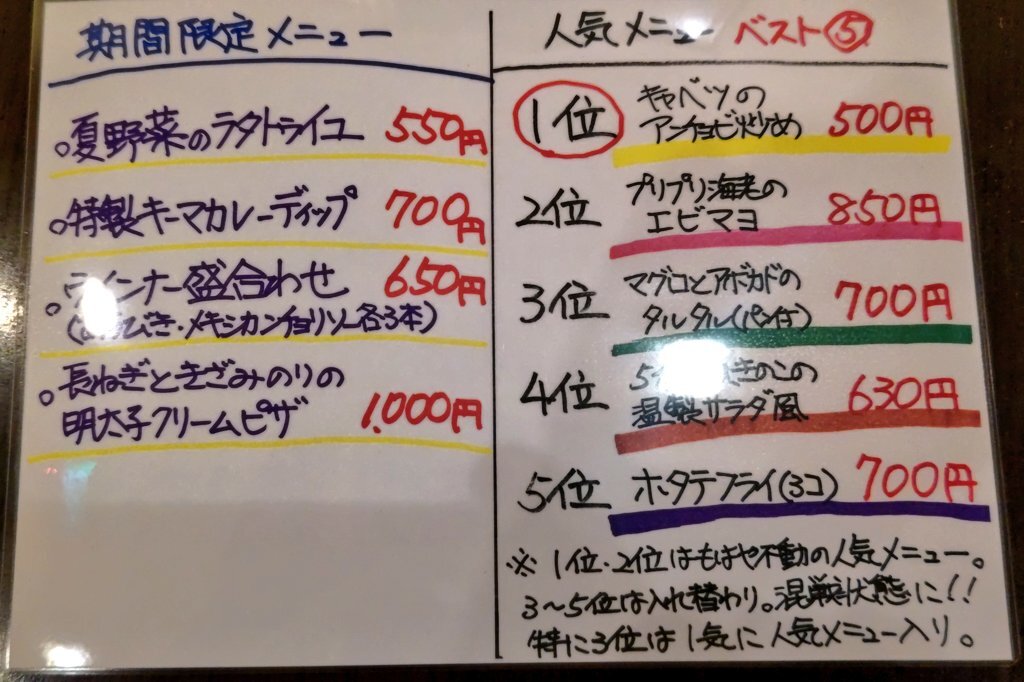 期間限定メニュー
夏野菜のラタトゥイユ 550円
特製キーマカレーディップ 700円
ウインナー盛合わせ 650円
びき・メキシカンチョリソー各3本)
長ねぎときざみのりの
明太子クリームピザ 1,000円
人気メニュー ベスト⑤
1位 キャベツの
アンチョビ炒め 500円
2位 プリプリ海老の
エビマヨ 850円
3位 マグロとアボカドの
タルタル(パン付) 700円
4位 5 きのこの
温製サラダ風 630円
5位 ホタテフライ(3コ) 700円
※1位・2位はもはや不動の人気メニュー。
3〜5位は入れ替わり。混戦状態に!!
特に3位は1気に人気メニュー入り。